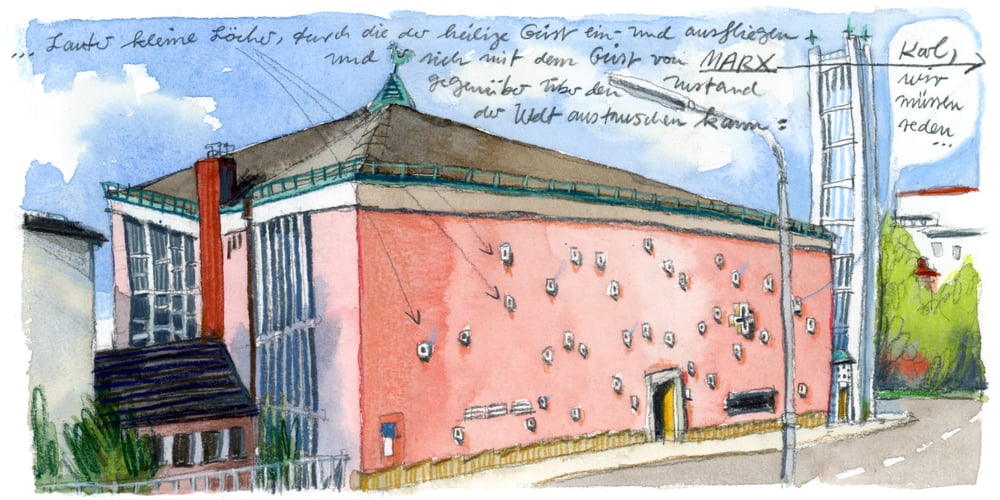 ... Lauter kleine Löcher, durch die der heilige Geist ein- und ausfliegen
und sich mit dem Geist von MARX
gegenüber über den Zustand
der Welt austauschen kann:
Karl,
wir
müssen
reden
...